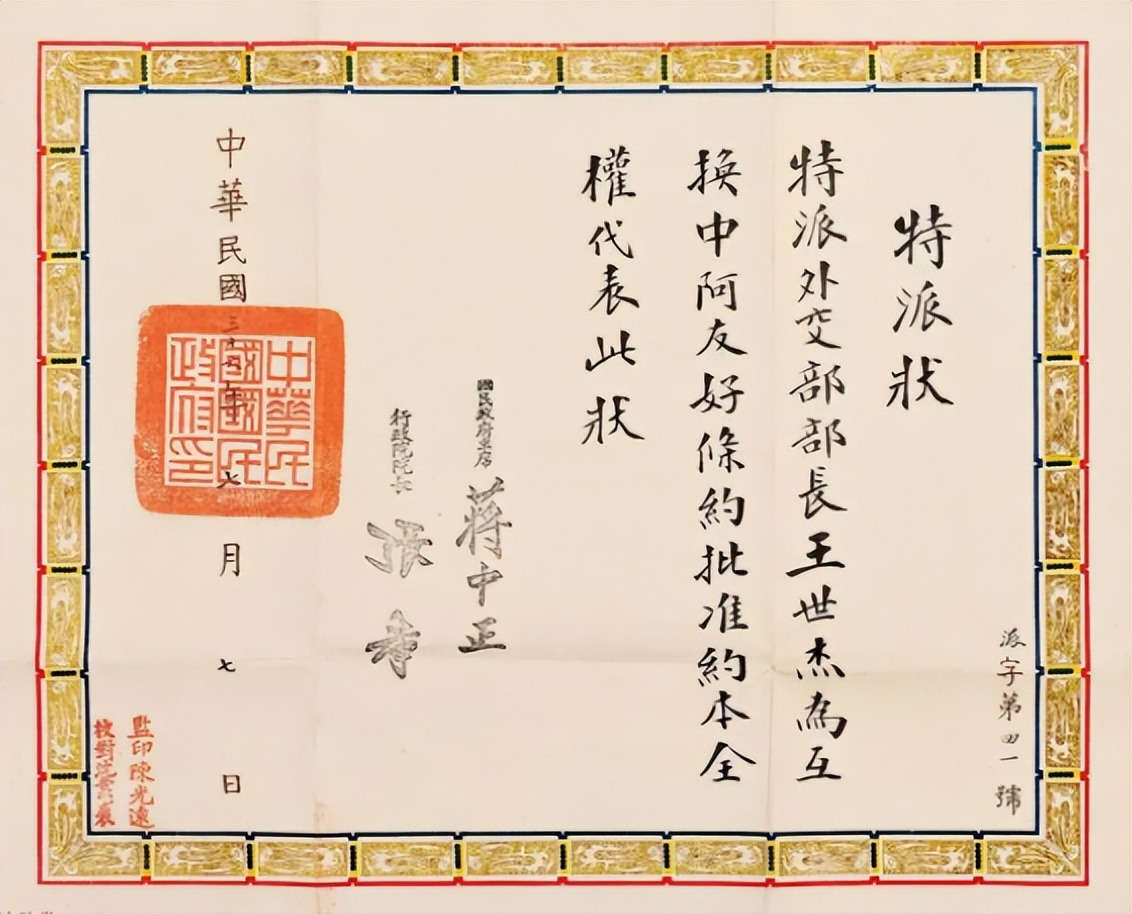 派字第四一號
特派狀
特派外交部部長王世杰為互
換中阿友好條約批准約本全
權代表此狀
國民政府主席 蔣中正
行政院院長 張羣
中華民國三十六年六月七日
中華民
國國民
政府印
監印陳光遠
校對